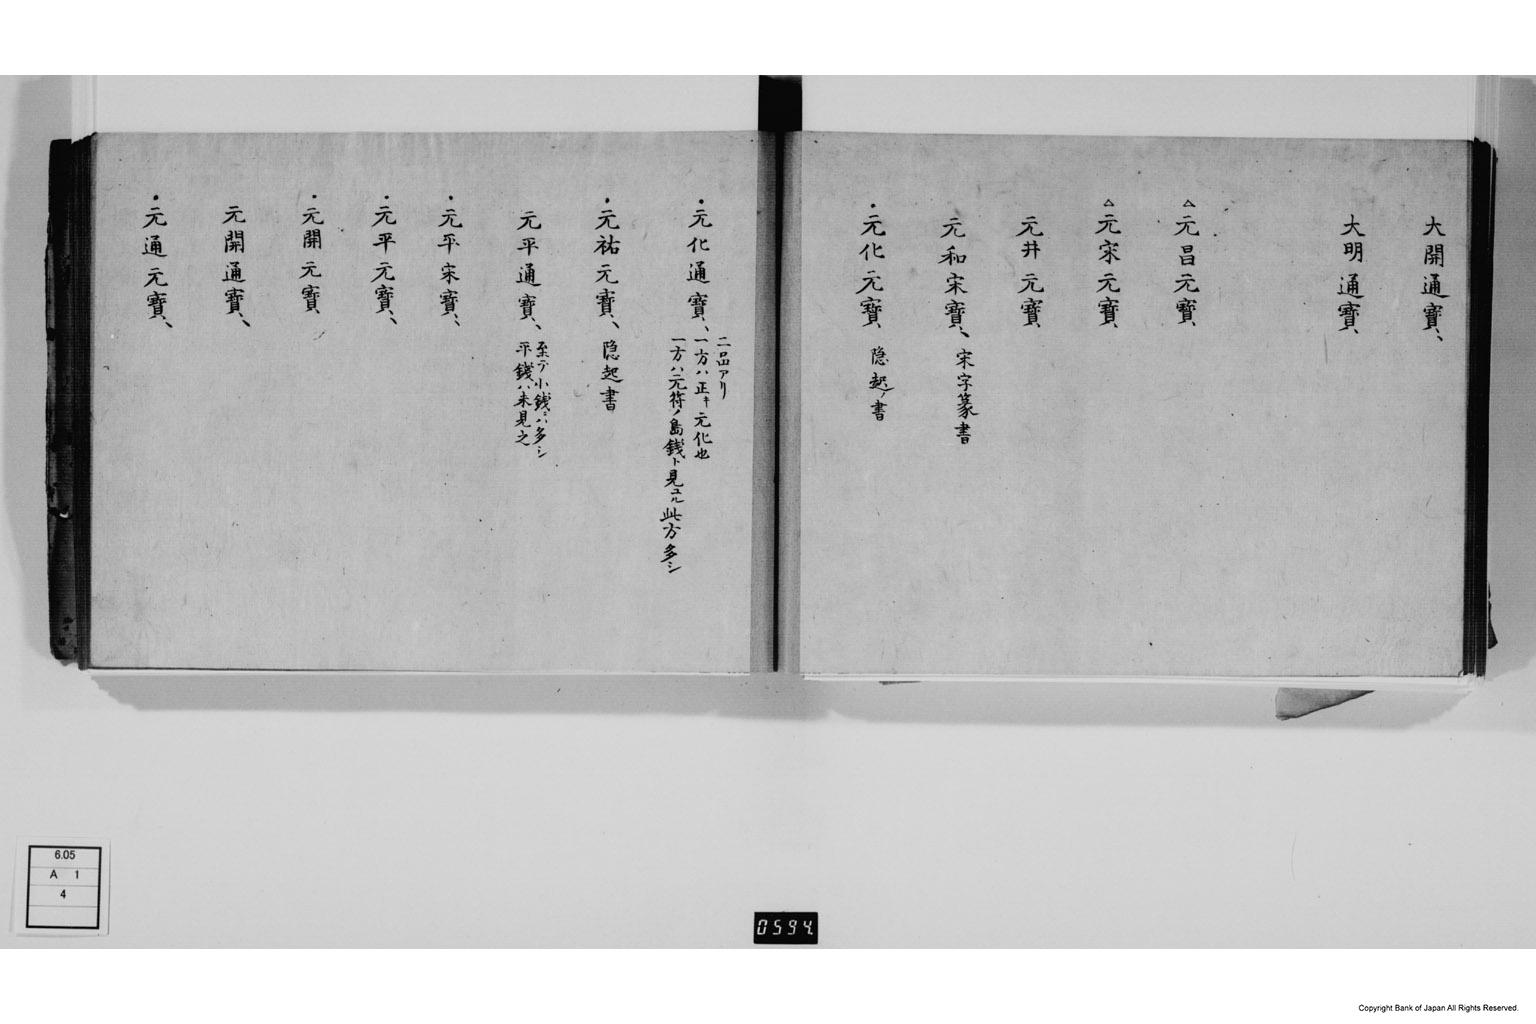 大開通寳、
大明通寳、
△元昌元寳、
△元宋元寳、
元井元寳、
元和宋寳、 宋字篆書
•元化元寳、 隠起ノ書
•元化通寳、
二品アリ
一方ハ正キ元化也
一方ハ元符ノ島銭ト見ユル此方多シ
•元祐元寳、 隠起書
元平通寳、
至テ小銭ニハ多シ
平銭ハ未見之
•元平宋寳、
•元平元寳、
•元開元寳、
元開通寳、
•元通元寳、
6.05
A 1
4
0594.
Copyright Bank of Japan All Rights Reserved.